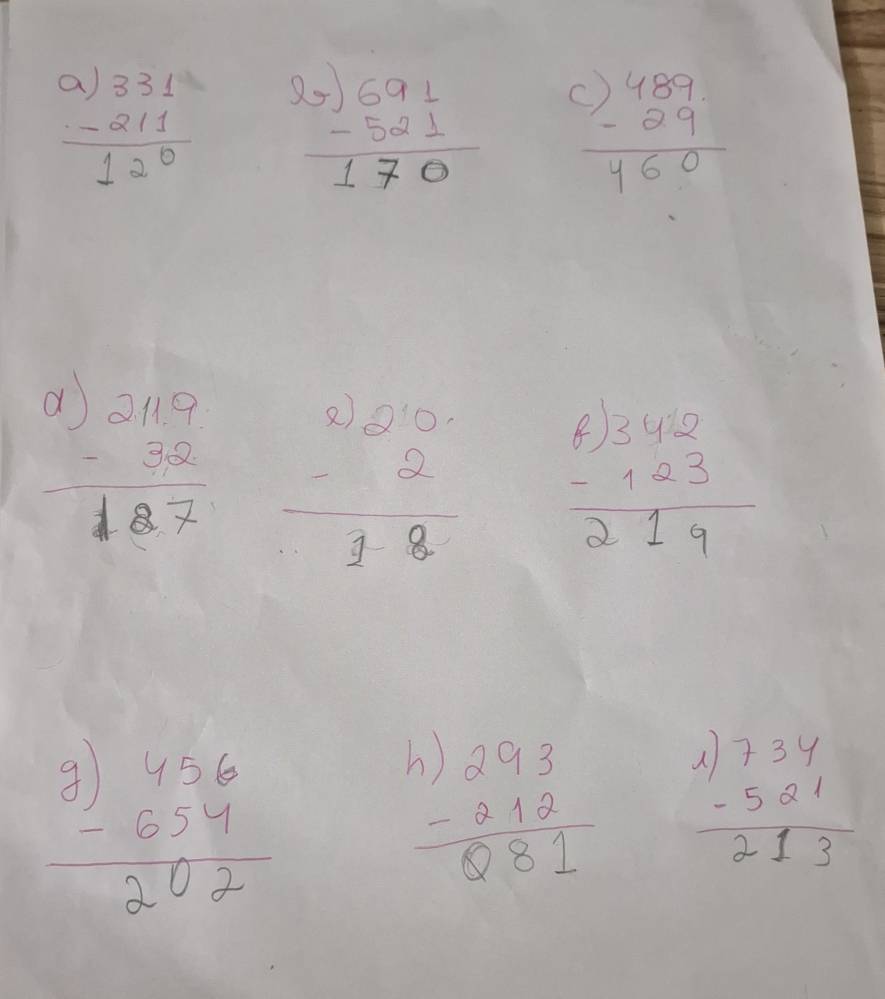 a) 331 b) 691 c) 489
- 211 - 521 - 29
120 170 460
d) 219 e) 20 f) 342
- 32 - 2 - 123
187 18 219
g) 456 h) 293 i) 734
- 654 - 212 - 521
202 081 213